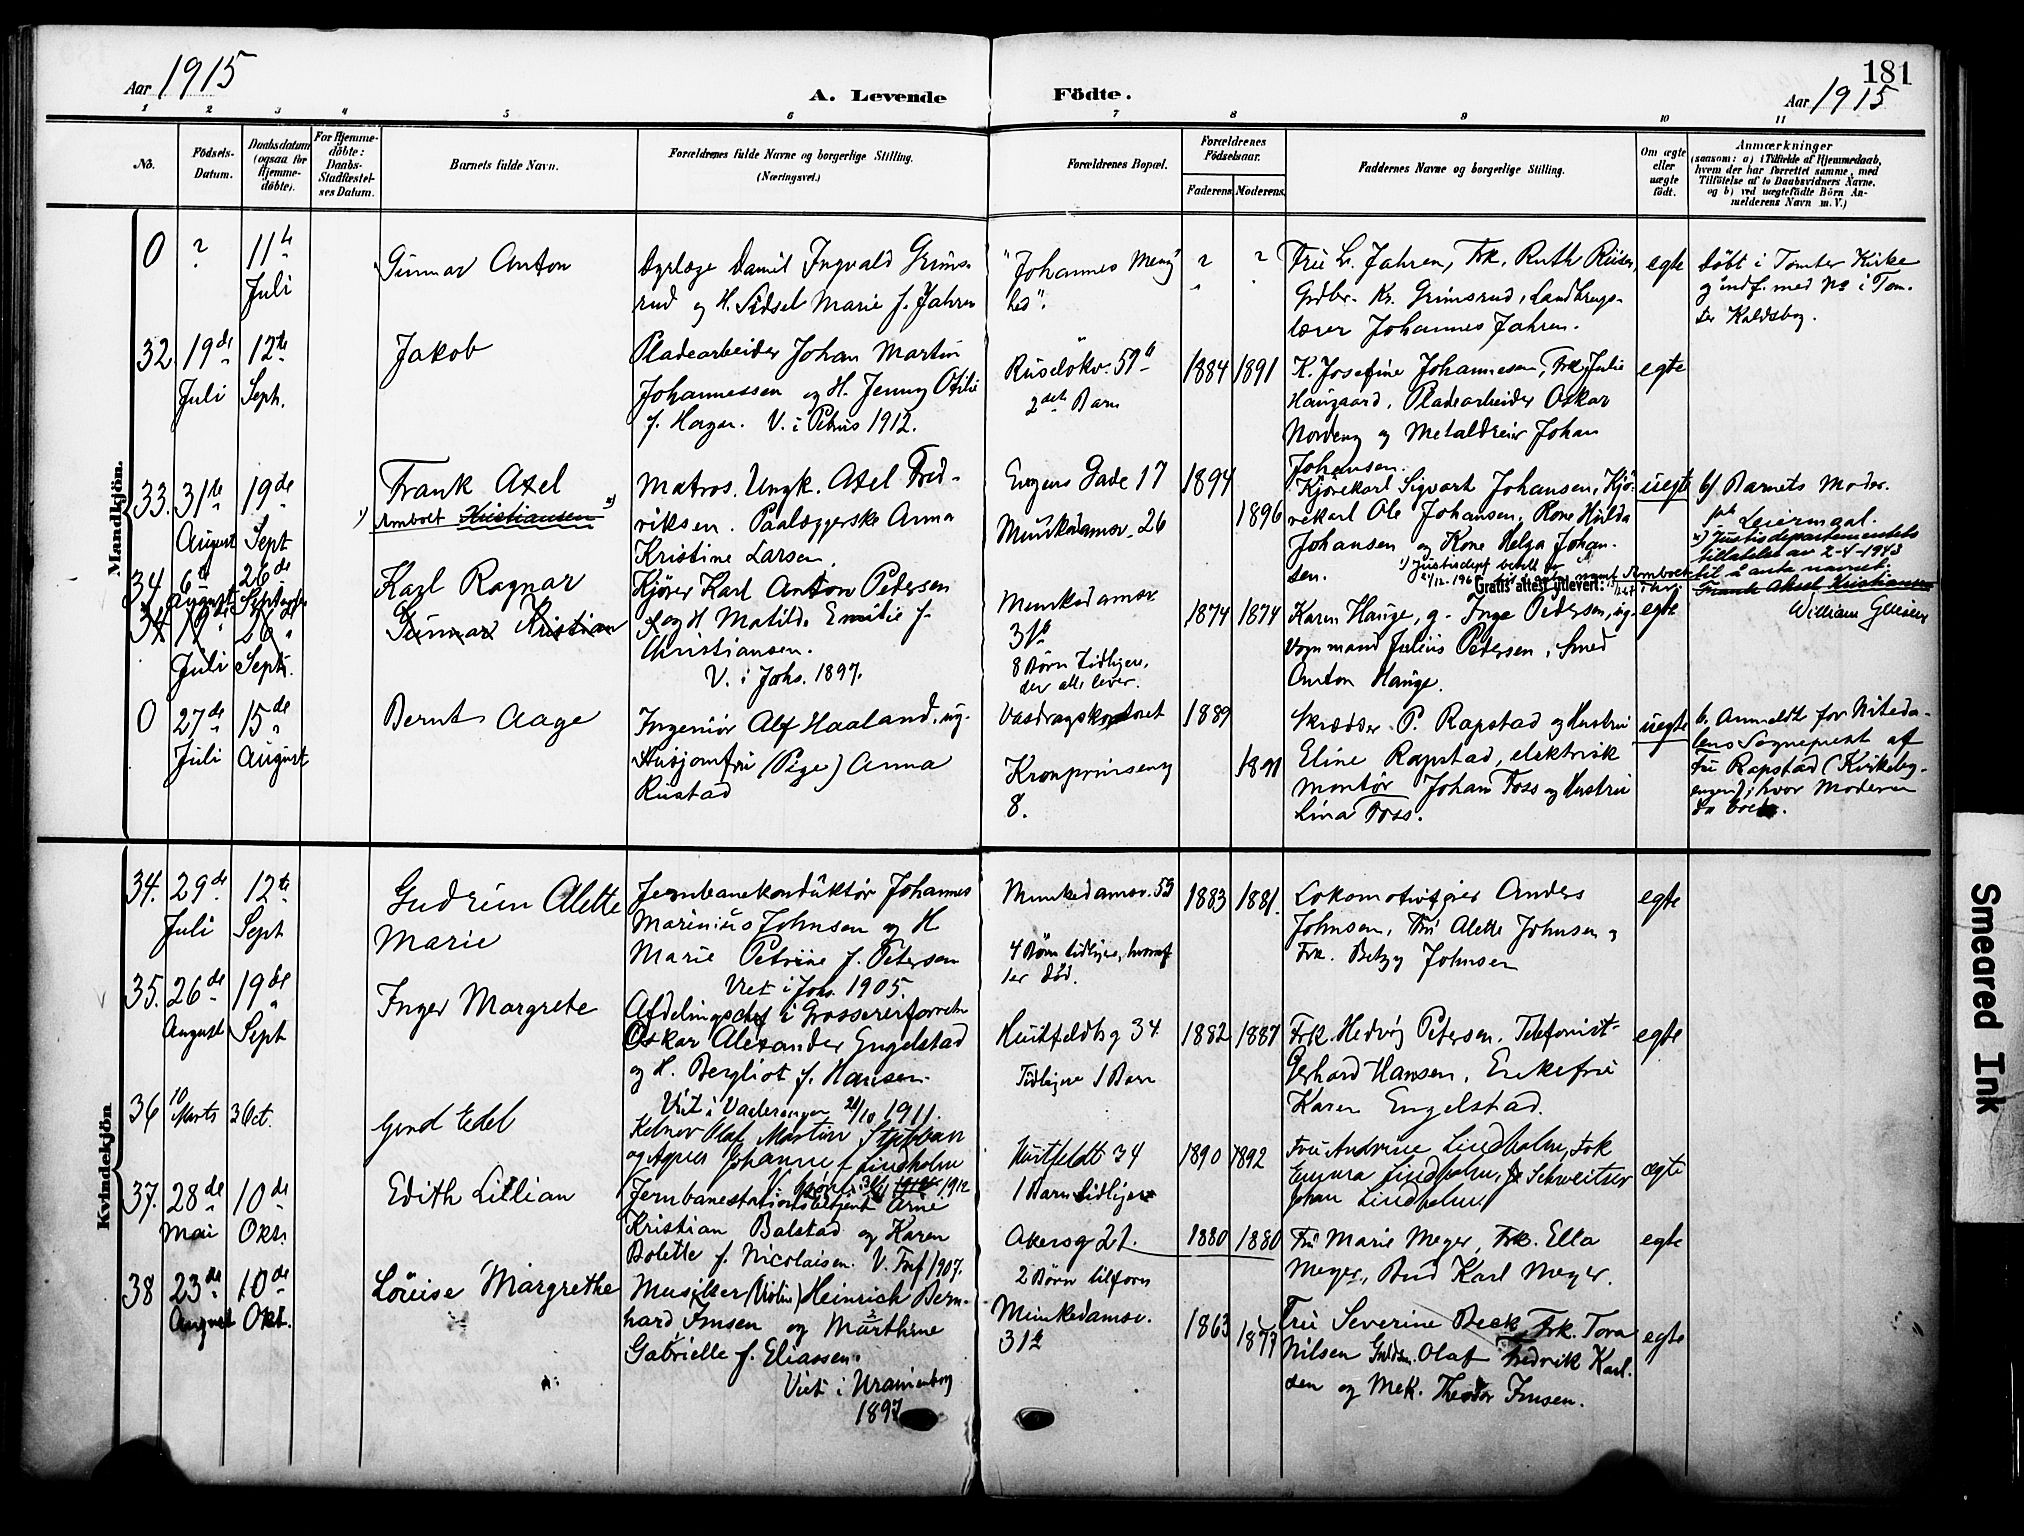 Aar 1915
A. Levende
Födte.
181
Aar 1915
1 2 3 4 5 6 7 8 9 10 11
No.
Födsels-Datum.
Daabsdatum (ogsaa for Hjemme-döbte).
For Hjemme-döbte: Daabs-Stadfæstel-ses Datum.
Barnets fulde Navn.
Forældrenes fulde Navne og borgerlige Stilling. (Næringsvei.)
Forældrenes Bopæl.
Forældrenes Födselsaar.
Faderens Moderens
Faddernes Navne og borgerlige Stilling.
Om ægte eller uægte födt.
Anmærkninger
(saasom: a) i Tilfælde af Hjemmedaab, hvem der har forrettet samme, med Tilföielse af to Daabsvidners Navne, og b) ved uægtefödte Börn An-melderens Navn m.V.)
Mandkjön.
0 ? 11te Juli
Gunnar Anton
Dyrlæge Daniel Ingvald Grims-
rud og H. Sidsel Marie f. Jahren
"Johannes Meny
hed".
? ?
Fru L. Jahren, Frk. Ruth Riisen,
Grdbr. Kr. Grimsrud, Landbrugs-
lærer Johannes Jahren.
egte
Döbt i Tomter Kirke
og indf. med No i Tom-
ter Kaldsbog.
32. 19de Juli 12te Sept.
Jakob
Pladearbeider Johan Martin
Johannessen og H. Jenny Otilie
f. Hagen. V. i Petrus 1912.
Ruselökv. 59b
2det Barn
1884 1891
K. Josefine Johannesen, Frk. Julie
Haugaard, Pladearbeider Oskar
Nordeng og Metaldreier Johan
Johansen.
egte
33. 31te August 19de Sept
Frank Axel
Armbolt Kristiansen
Matros. Ungk. Axel Fred-
riksen. Paalæggerske Anna
Kristine Larsen.
Engens Gade 17
Munkedamsv. 26
1894
1896
Kjörekarl Sigvart Johansen, Kjö-
rekarl Ole Johansen, Kone Hulda
Johansen og Kone Helga Johan-
sen.
uegte
b) Barnets Moder.
1ste Leiermaal.
x) Justisdepartementets
tillatelse av 2-4-1943
til å anta navnet:
Frank Aksel Kristiansen
William
Gratis attest utlevert.
34 6te August 26de September
Karl Ragnar
Kjörer Karl Anton Petersen
og H Matilde Emilie f.
Christiansen.
V. i Johs. 1897.
Munkedamsv
31b
8 Börn tidligere,
der alle lever.
1874 1874
Karen Hauge, g. Inge Pedersen, og
Vognmand Julius Petersen, Smed
Anton Hauge.
egte
34 19 Juli 26 Sept.
Gunnar Kristian
0 27de Juli 15de August
Bernt Aage
Ingeniör Alf Haaland, ug.
Husjomfru (Pige) Anna
Rustad
Vasdragskontoret
Kronprinseng
8.
1889
1891
Skrædder P. Rapstad og Hustru
Eline Rapstad, elektrisk
Montör Johan Foss og Hustru
Lina Foss.
uegte
b. Anmeldt for Niteda-
lens Sogneprest af
Fru Rapstad (Kirkeby-
engen), hvor Moderen
da boede.
Kvindekjön
34. 29de Juli 12te Sept
Gudrun Alette
Marie
Jernbanekonduktör Johannes
Marinius Johnsen og H
Marie Petrine f. Petersen
Viet i Johs. 1905.
Munkedamsv. 53
4 Börn tidligere, hvoraf
1 er död.
1883 1881.
Lokomotivfyrer Anders
Johnsen, Fru Alette Johnsen og
Frk. Betzy Johnsen
egte
35. 26de August 19de Sept
Inger Margrete
Afdelingschef i Grossererforretn
Oskar Alexander Engelstad
og H. Bergliot f. Hansen.
Viet i Vaalerengen 21/10 1911.
Huitfeldtsg 34
Tidligere 1 Barn
1882 1887
Frk. Hedvig Petersen, Telefonist
Gerhard Hansen, Enkefru
Karen Engelstad.
egte
36 10 Marts 3 Oct.
Gerd Edel
Kelner Olaf Martin Stubban
og Agnes Johanne f. Lindholm
1912
Huitfeldt 34
1 Barn tidligere
1890 1892
Fru Andrine Lindholm, Frk
Emma Lindholm, Schweitser
Johan Lindholm
ægte
37. 28de Mai 10de Okt.
Edith Lillian
Jernbanestationsbetjent Arne
Kristian Balstad og Karen
Bolette f. Nicolaisen. V. Tref 1907.
Akersg 21.
2 Börn tilforn
1880 1880
Fru Marie Meyer, Frk. Ella
Meyer, Bud Karl Meyer.
egte
38 23de August 10de Okt.
Louise Margrethe
Musiker (Violin) Heinrich Bern-
hard Imsen og Marthine
Gabrielle f. Eliassen.
Viet i Uranienborg
1897
Munkedamsv.
31b
1863 1877
Fru Severine Beck, Frk. Tora
Nilsen Guldsm. Olaf Fredrik Karl-
sen og Mek. Theodor Imsen.
egte
Smeared Ink